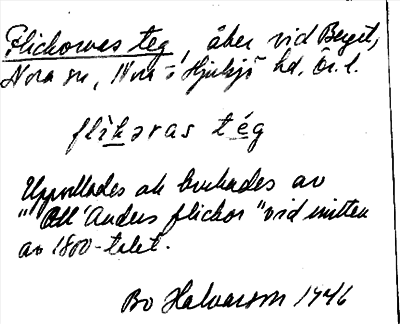 Flickornas teg, åker vid Berget,
Nora sn, Nora o Hjulsjö hd, Ör. l.
flìkəras tég
Uppodlades ock brukades av
"Oll'Anders flickor" vid mitten
av 1800-talet.
Bo Halvarson 1946